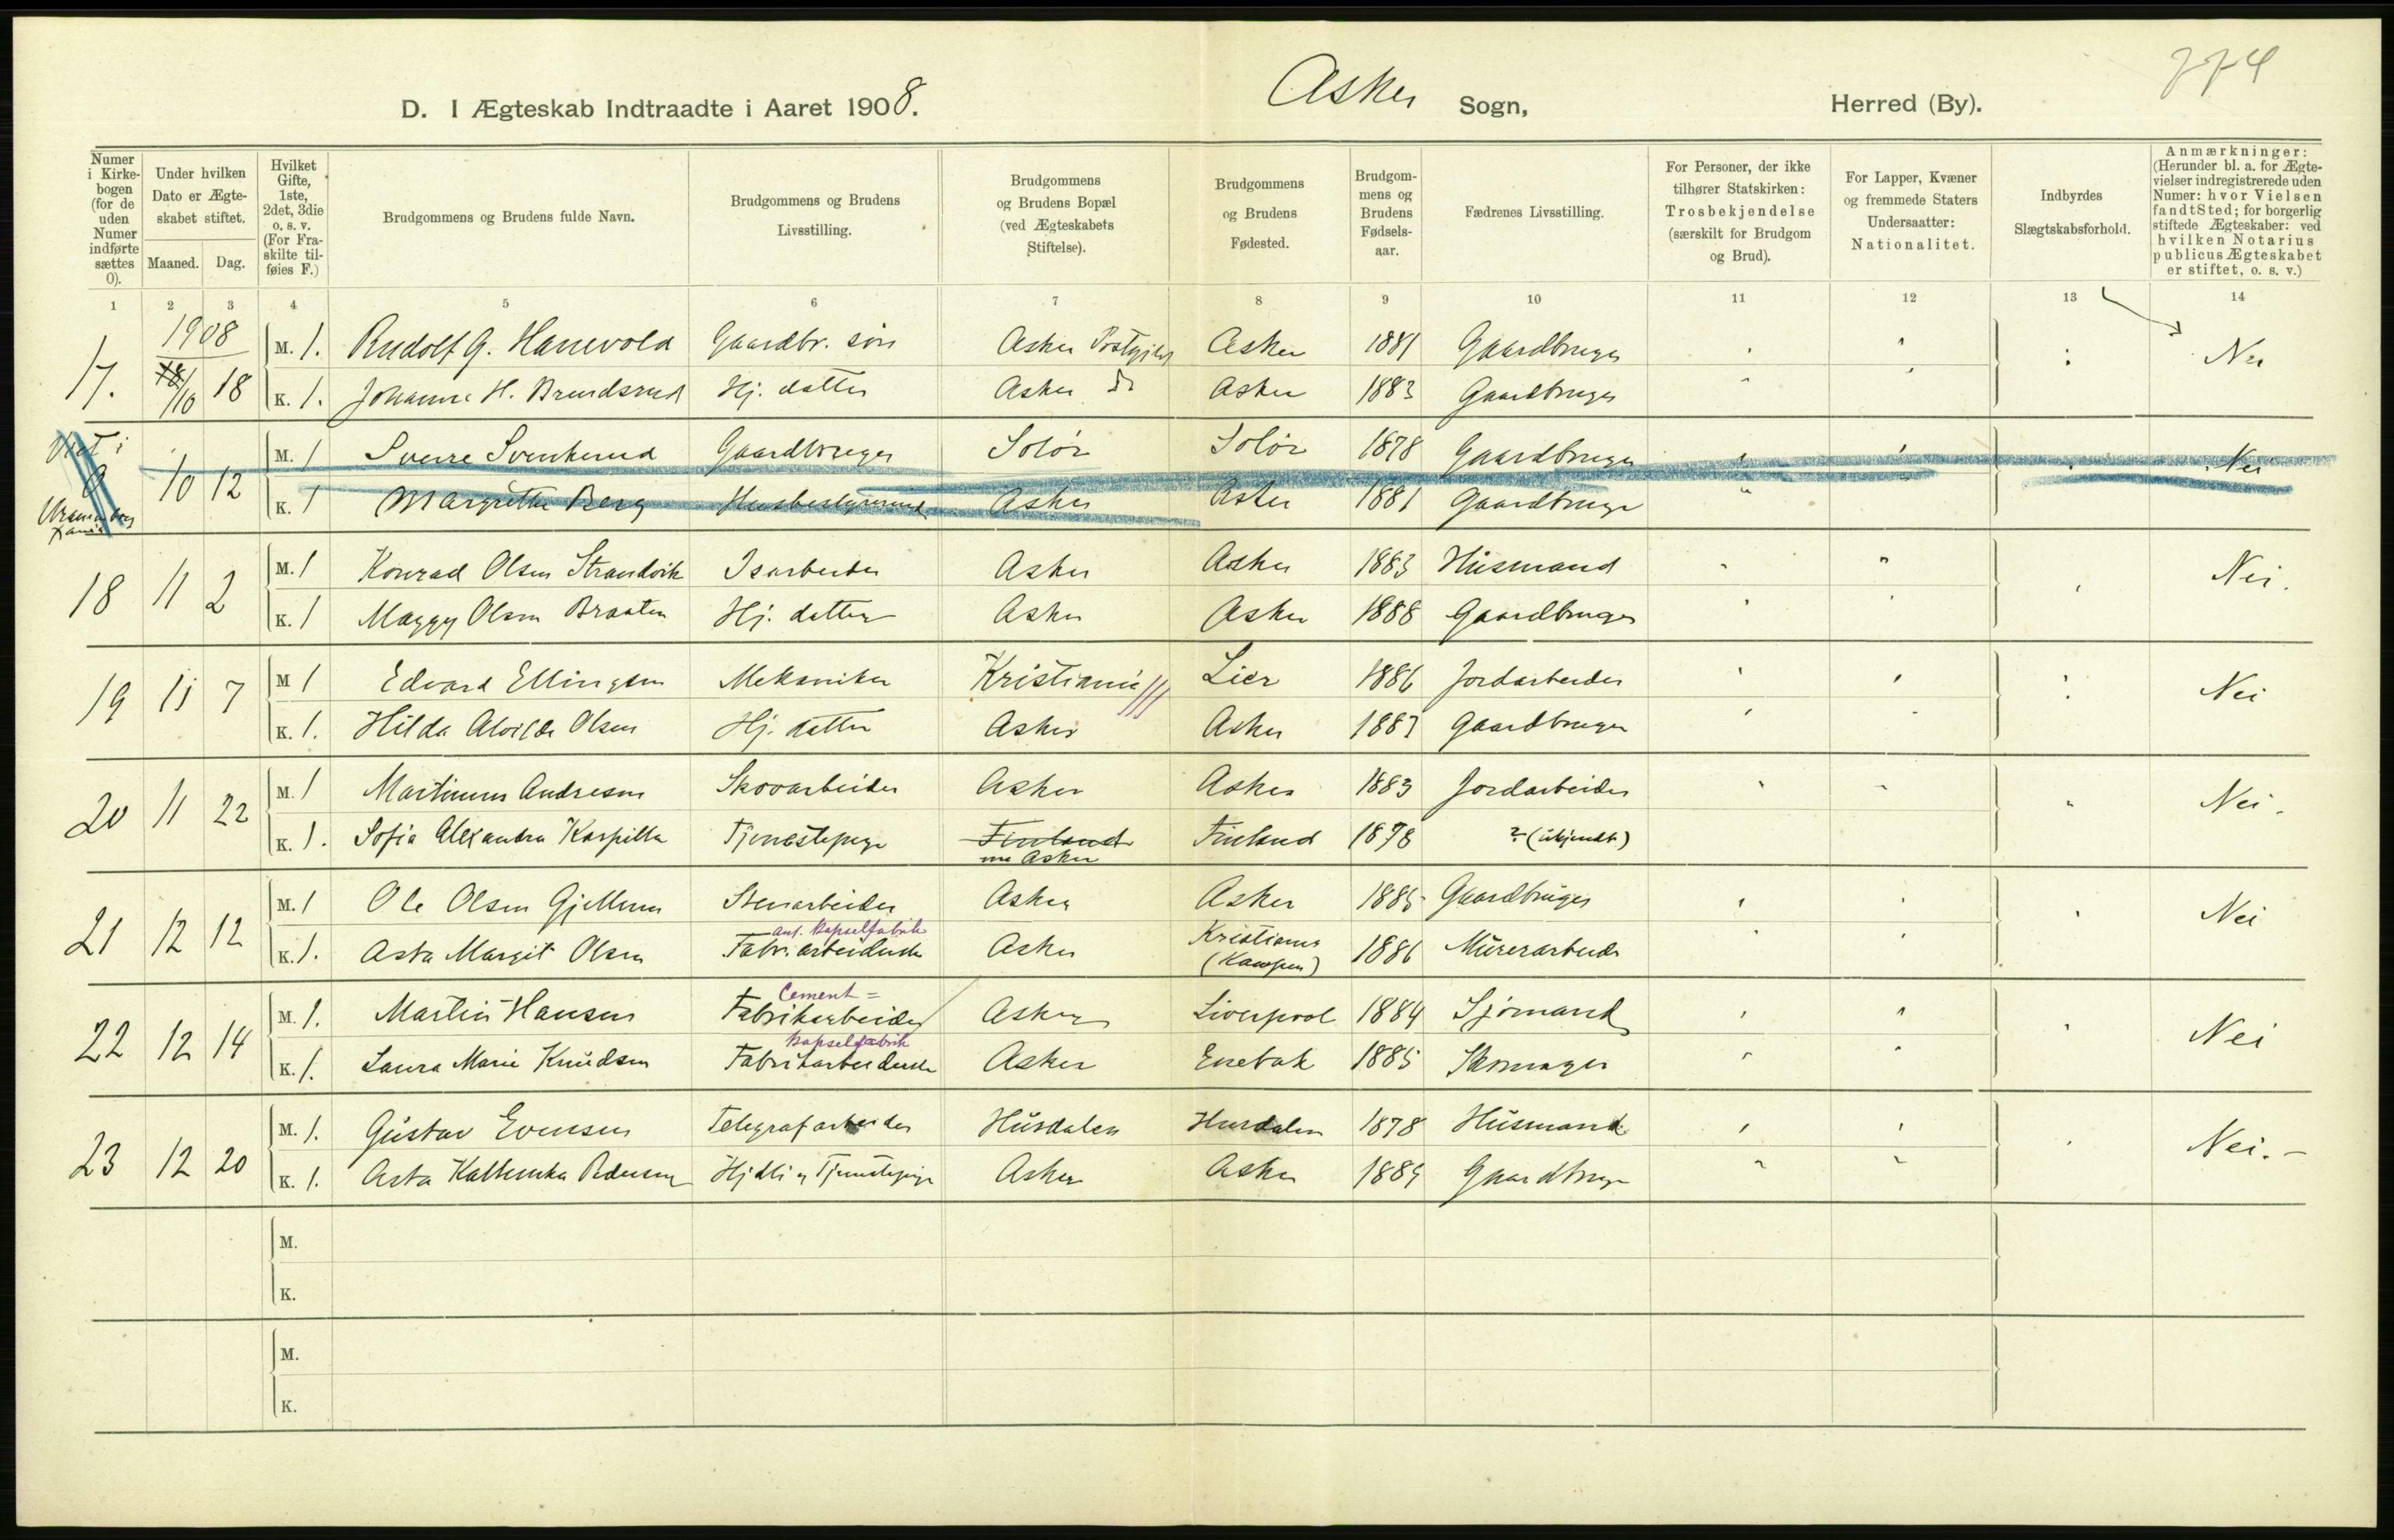 774
D. I Ægteskab Indtraadte i Aaret 1908. Asker Sogn, Herred (By).
Numer i Kirkebogen (for de uden Numer indførte sættes 0).
Under hvilken Dato er Ægteskabet stiftet.
Maaned. Dag.
Hvilket Gifte, 1ste, 2det, 3die o. s. v. (For Fraskilte tilføies F.)
Brudgommens og Brudens fulde Navn.
Brudgommens og Brudens Livsstilling.
Brudgommens og Brudens Bopæl (ved Ægteskabets Stiftelse).
Brudgommens og Brudens Fødested.
Brudgommens og Brudens Fødselsaar.
Fædrenes Livsstilling.
For Personer, der ikke tilhører Statskirken: Trosbekjendelse (særskilt for Brudgom og Brud).
For Lapper, Kvæner og fremmede Staters Undersaatter: Nationalitet.
Indbyrdes Slægtskabsforhold.
Anmærkninger: (Herunder bl. a. for Ægtevielser indregistrerede uden Numer: hvor Vielsen fandt Sted; for borgerlig stiftede Ægteskaber: ved hvilken Notarius publicus Ægteskabet er stiftet, o. s. v.)
1 2 3 4 5 6 7 8 9 10 11 12 13 14
1908
17. 10 18 M. 1. Rudolf G. Hanevold Gaardbr. søn Asker Asker 1881 Gaardbruger Nei
K. 1. Johanne H. Brendsrud Hj. datter Asker do Asker 1883 Gaardbruger
Viet i
0 10 12 M. 1 Sverre Svenkerud Gaardbruger Solør Solør 1878 Gaardbruger Nei
K. 1 Margrethe Berg Husbestyrerinde Asker Asker 1881 Gaardbruger
18 11 2 M. 1 Konrad Olsen Strandvik Isarbeider Asker Asker 1883 Husmand Nei.
K. 1 Maggy Olsen Braaten Hj. datter Asker Asker 1888 Gaardbruger
19 11 7 M 1 Edvard Ellingsen Mekaniker Kristiania Lier 1886 Jordarbeider Nei
K. 1. Hilda Alvilde Olsen Hj. datter Asker Asker 1887 Gaardbruger
20 11 22 M. 1 Martinus Andresen Skovarbeider Asker Asker 1883 Jordarbeider Nei.
K. 1. Sofia Alexandra Karpilla Tjenestepige Finland Finland 1878 ? (ukjendt)
nu Asker
21 12 12 M. 1 Ole Olsen Gjellum Stenarbeider Asker Asker 1885 Gaardbruger Nei
Kapselfabrik
K. 1. Asta Margit Olsen Fabr. arbeiderske Asker Kristiania (Kampen) 1886 Murerarbeider
Cement =
22 12 14 M. 1. Martin Hansen Fabrikarbeider Asker Liverpool 1884 Sjømand Nei
Kapselfabrik
K. 1. Laura Marie Knudsen Fabrikarbeiderske Asker Enebak 1885 Skomager
23 12 20 M. 1. Gustav Evensen Telegrafarbeider Hurdalen Hurdalen 1878 Husmand Nei. -
K. 1. Asta Kathinka Pedersen Asker Asker 1889 Gaardbruger
M.
K.
M.
K.